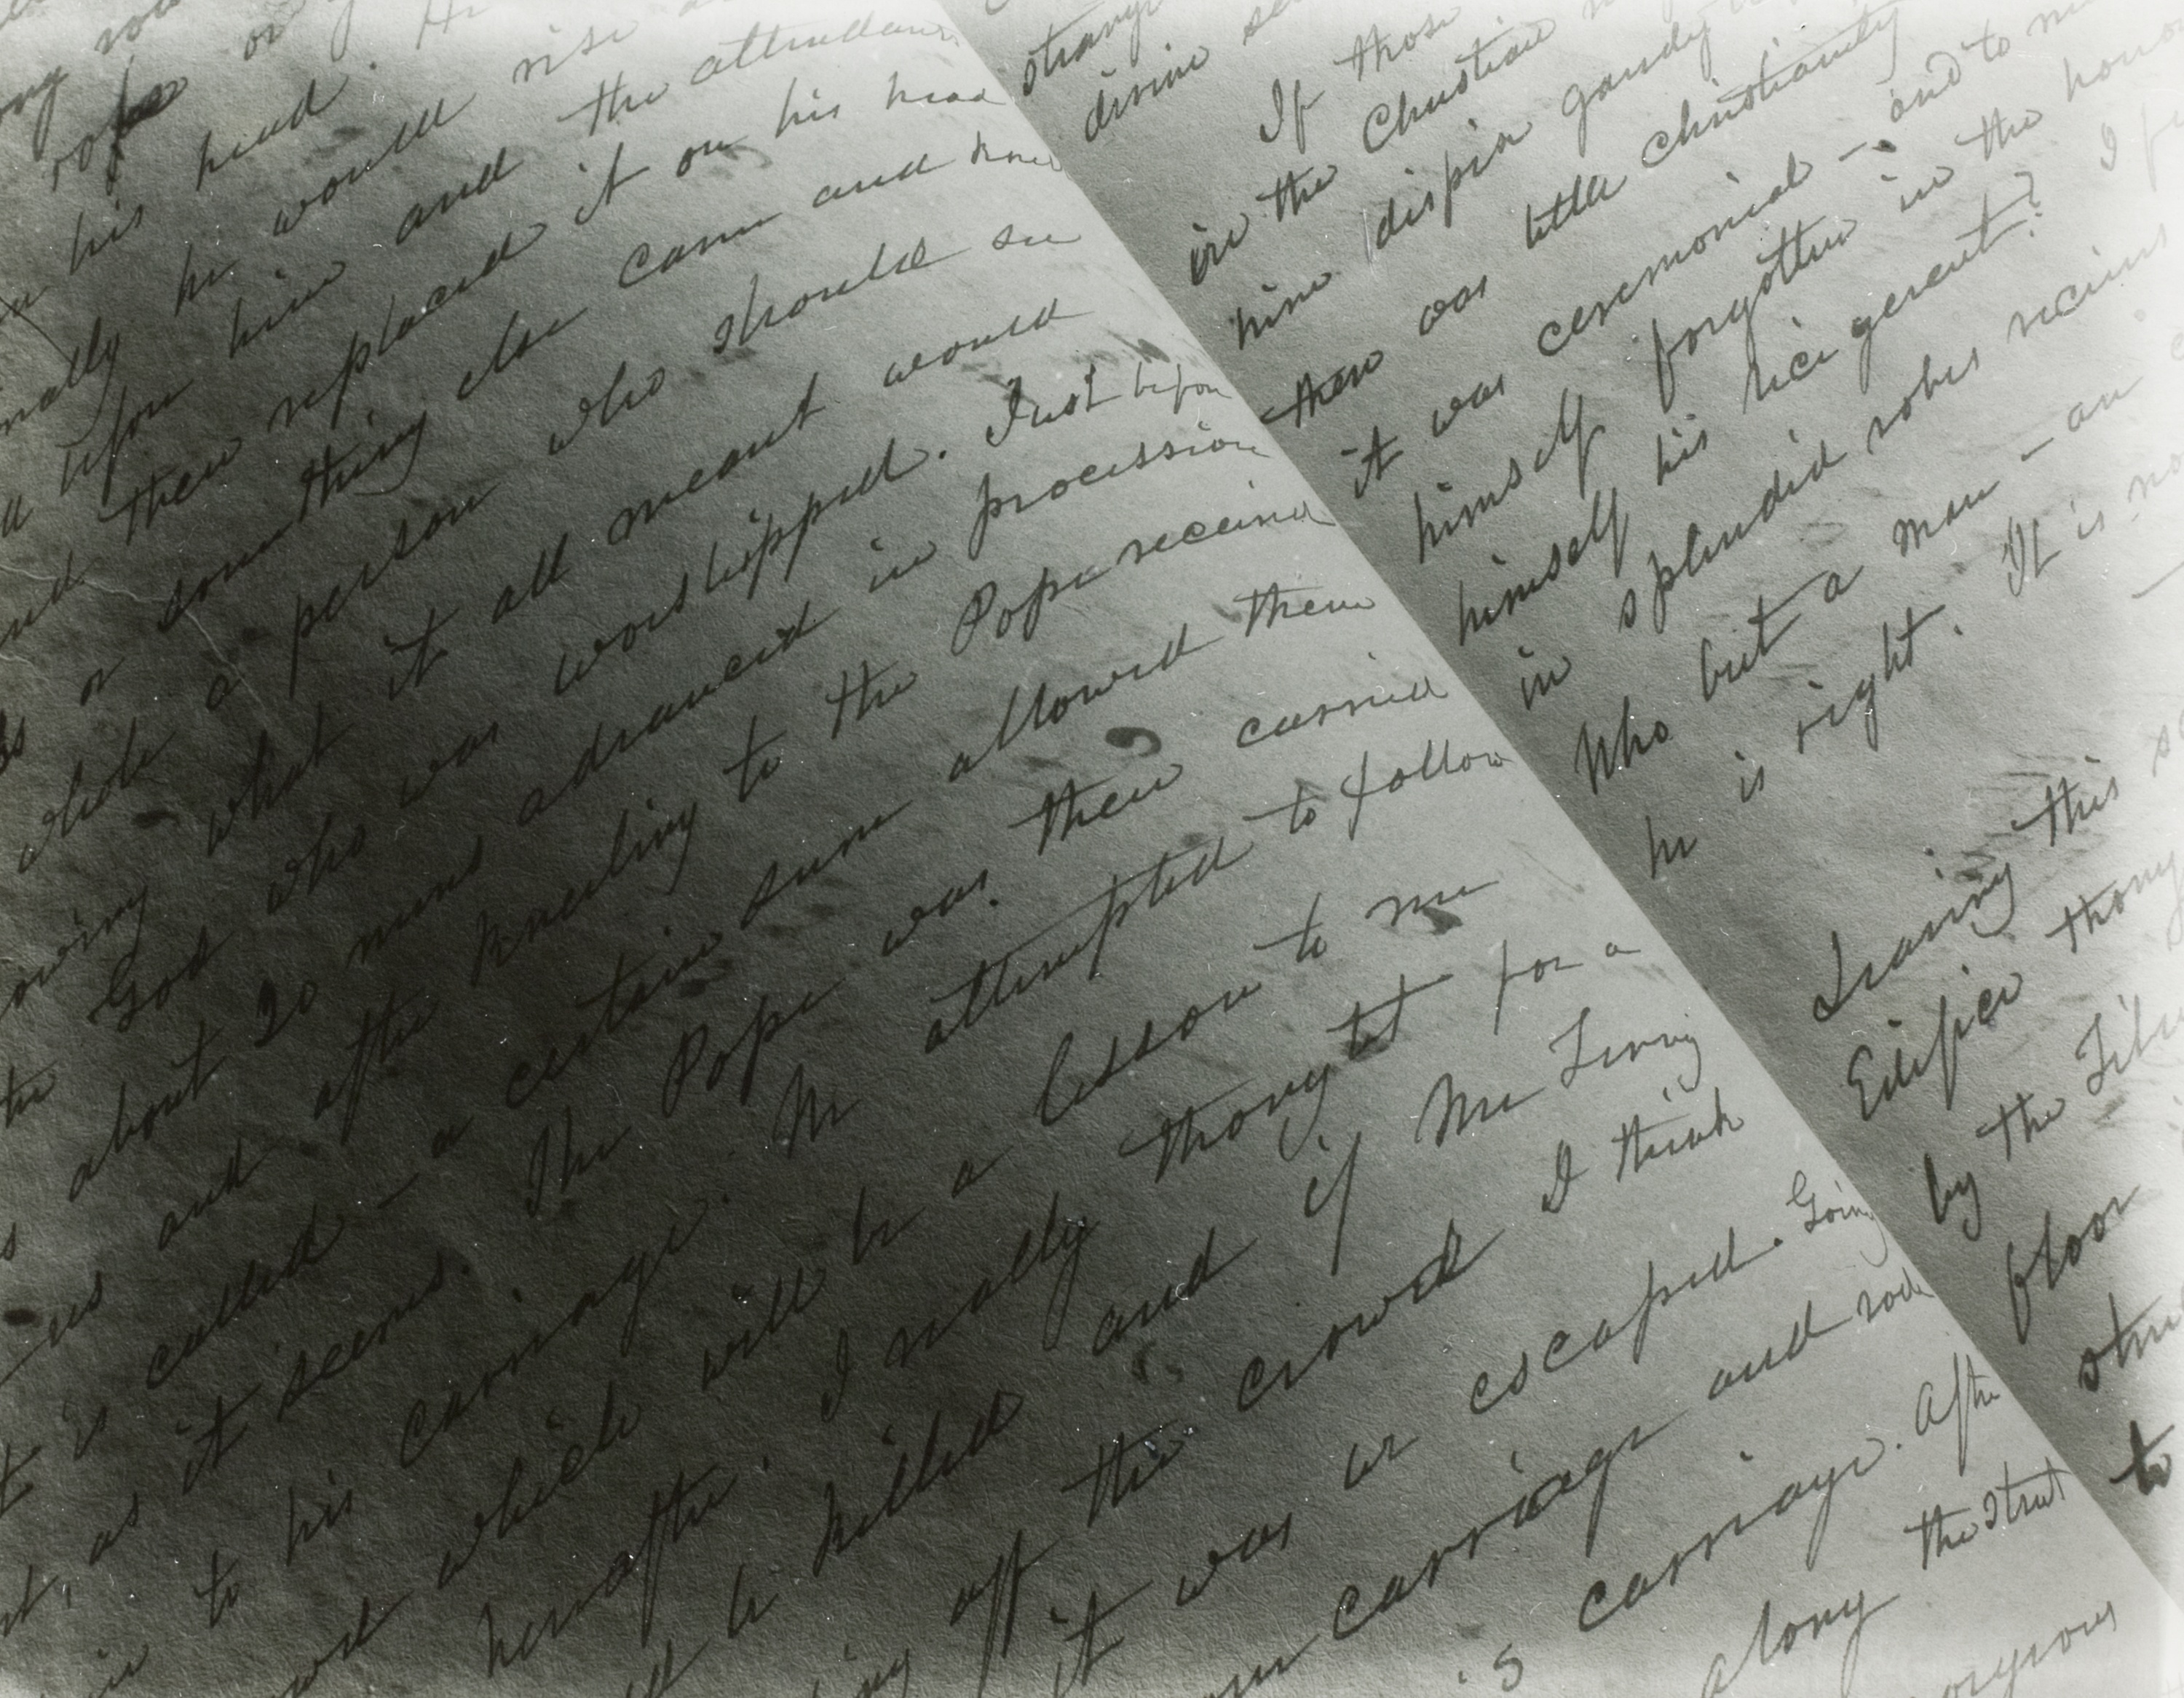 robe or
his head.
nally he would rise
upon him and the attendan
and then replaced it on his head
or something else came and
while a person who should see
owing what it all meant would
the God who was worshipped. Just before
about 20 mens advanced in procession
us and after kneeling to the Pope received
is called - a certain sum allowed them
as it seems. The Pope was then carried
to his carriage. He attempted to follow
which will be a lesson to me
hereafter. I really thought for a
be killed and if Mr Living
off the crowd I think
it was we escaped. Going
carriage and rode
's carriage. After
along the Street
strange
divine
If those
in the Christian
him dispise gaudy
there was little christianity
it was ceremonial - and to me
himself forgotten in the hono
himself his vice gerent? I
in splendid robes receives
Who but a man - an
he is right. It is no
Leaving this
Edifice
by the
floor
to